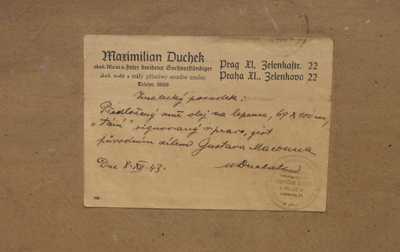 Maximilian Duchek
akad. Maler u. ständig beeideter Sachverständiger
Akad. malíř a stálý přísežný soudní znalec
Telefon
Prag XI, Zelenkastr. 22
Praha XI., Zelenkova 22
Znalecký posudek:
Předložený mně olej na lepence, 69 x 100 cm,
" signovaný vpravo, jest
původním dílem Gustava Macouna
Dne 8. XII. 43. MDuchek